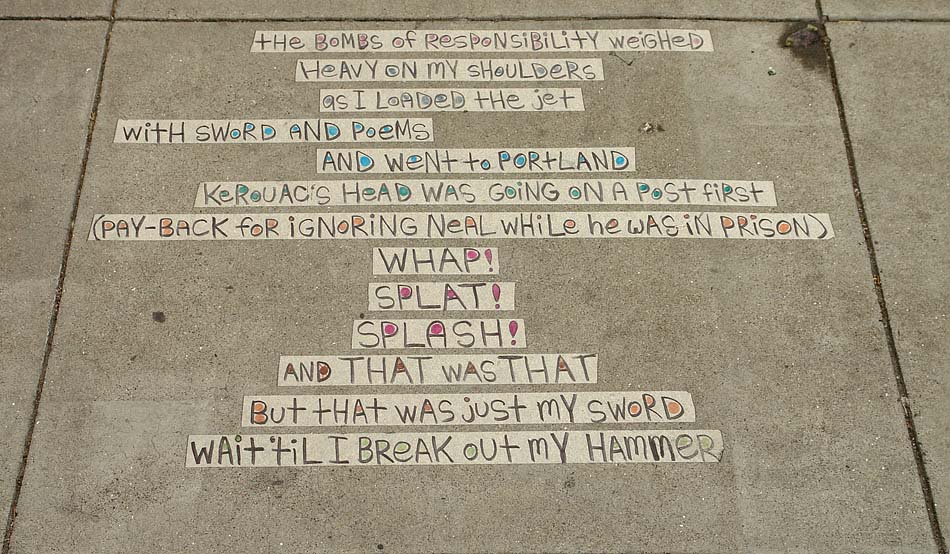 tHe BOMBS of ResponsiBiLitY weiGHeD
HeAVY ON MY SHOULDeRS
as I LOADeD tHe jet
WitH SWORD AND PoeMS
AND weNt to PORtLAND
KeROUAC's HeAD WAS GOiNG ON A Post fiRst
(PAY-BACK foR iGNORiNG NeAL WHiLe he wAS iN PRiSON)
WHAP!
SPLAT!
SPLASH!
AND THAT WAS THAT
But tHAt wAS just MY SWORD
WAit 'tiL I BReAK out MY HAMMeR